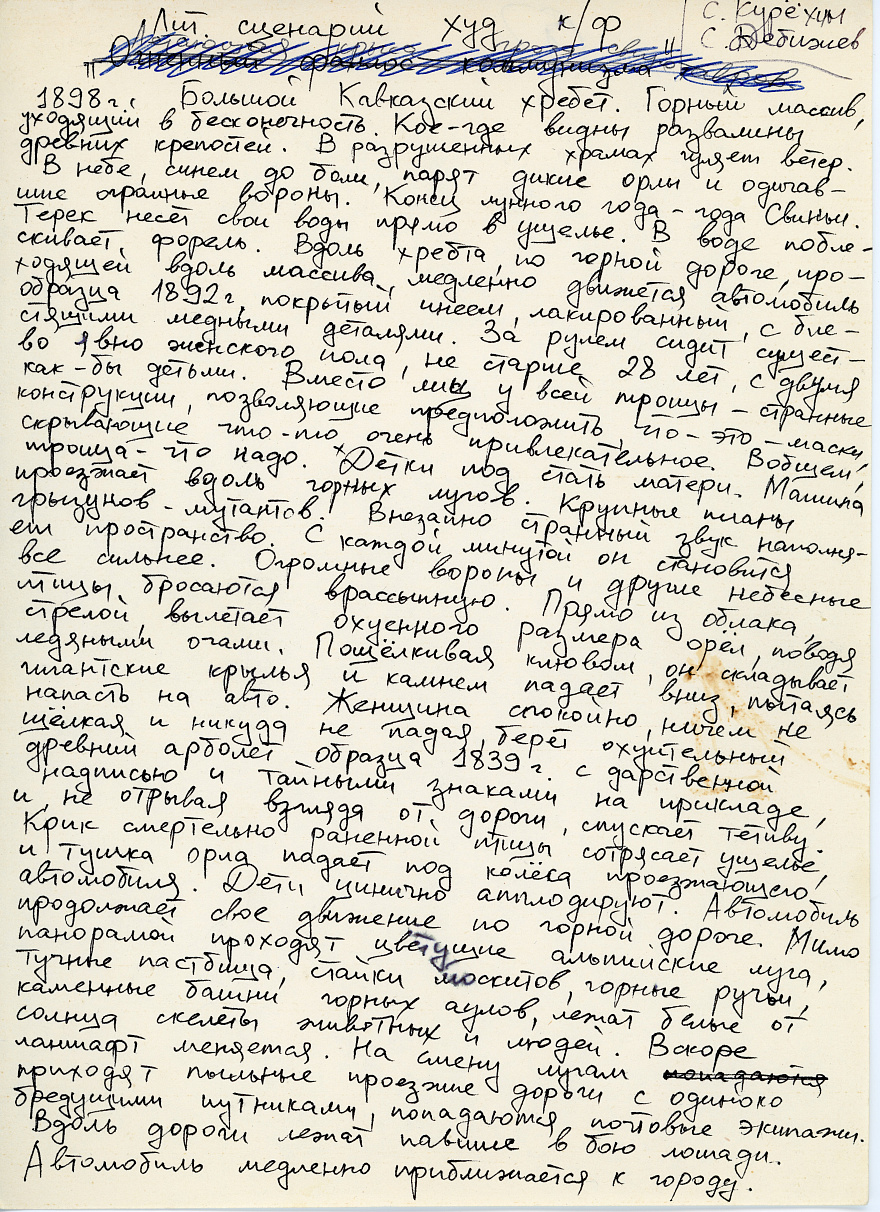 Лит сценарий худ к/ф
С. Курёхин
С. Дебижев
1898 г. Большой Кавказский хребет. Горный массив,
уходящий в бесконечность. Кое-где видны развалины
древних крепостей. В разрушенных храмах гуляет ветер.
В небе, синем до боли, парят дикие орлы и одичав-
шие огромные вороны. Конец лунного года - года Свиньи.
Терек несёт свои воды прямо в ущелье. В воде побле-
скивает форель. Вдоль хребта, по горной дороге, про-
ходящей вдоль массива, медленно движется автомобиль
образца 1892 г, покрытый инеем, лакированный, с бле-
стящими медными деталями. За рулем сидит сущест-
во явно женского пола, не старше 28 лет, с двумя
как-бы детьми. Вместо лиц у всей троицы - странные
конструкции, позволяющие предположить, что-это-маски,
скрывающие что-то очень привлекательное. Вобщем,
троица - что надо. Детки под стать матери. Машина
проезжает вдоль горных лугов. Крупные планы
грызунов-мутантов. Внезапно странный звук наполня-
ет пространство. С каждой минутой он становится
все сильнее. Огромные вороны и другие небесные
птицы бросаются врассыпную. Прямо из облака,
стрелой, вылетает охуенного размера орёл, поводя
ледяными очами. Пощёлкивая клювом, он складывает
гигантские крылья и камнем падает вниз, пытаясь
напасть на авто. Женщина спокойно, ничем не
щёлкая и никуда не падая, берет охуительный
древний арболет образца 1839 г. с дарственной
надписью и тайными знаками на прикладе,
и, не отрывая взгляда от дороги, спускает тетиву.
Крик смертельно раненной птицы сотрясает ущелье,
и тушка орла падает под колёса проезжающего
автомобиля. Дети цинично апплодируют. Автомобиль
продолжает свое движение по горной дороге. Мимо
панорамой проходят цветущие альпийские луга,
тучные пастбища, стайки москитов, горные ручьи,
каменные башни горных аулов, лежат белые от
солнца скелеты животных и людей. Вскоре
ланшафт меняется. На смену лугам попадаются
приходят пыльные проезжие дороги с одиноко
бредущими путниками, попадаются почтовые экипажи.
Вдоль дороги лежат павшие в бою лошади.
Автомобиль медленно приближается к городу.